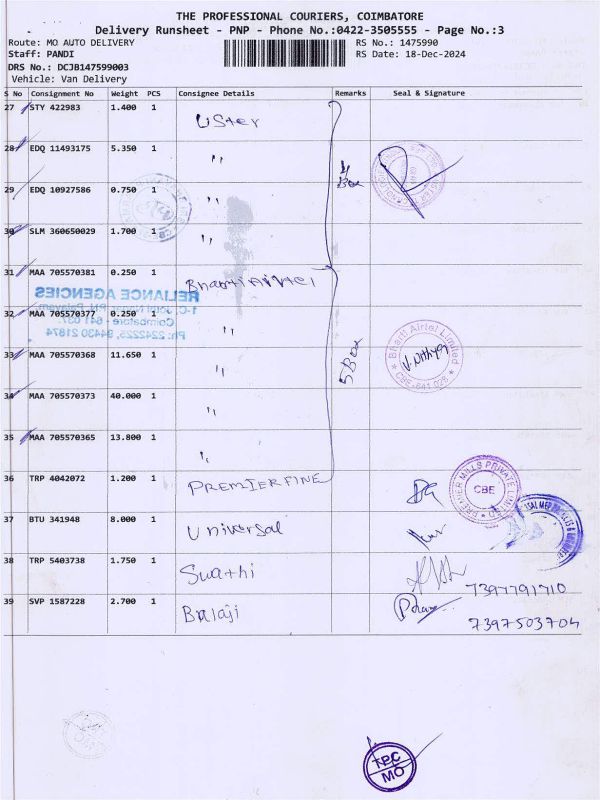 THE PROFESSIONAL COURIERS, COIMBATORE
Delivery Runsheet - PNP - Phone No.:0422-3505555 - Page No.:3
Route: MO AUTO DELIVERY RS No.: 1475990
Staff: PANDI RS Date: 18-Dec-2024
DRS No.: DCJB147599003
Vehicle: Van Delivery
S No Consignment No Weight PCS Consignee Details Remarks Seal & Signature
27 STY 422983 1.400 1 Uster
28 EDQ 11493175 5.350 1 "
4 Box
29 EDQ 10927586 0.750 1 "
30 SLM 360650029 1.700 1 "
31 MAA 705570381 0.250 1 Bharti Airtel
RELIANCE AGENCIES
32 MAA 705570377 0.250 1 "
Coimbatore - 641 037
Ph: 2242225, 94430 21874
33 MAA 705570368 11.650 1 "
5 Box
Bharti Airtel Limited
CBE-641 028
34 MAA 705570373 40.000 1 "
35 MAA 705570365 13.800 1 "
36 TRP 4042072 1.200 1 PREMIERFINE
PREMIER MILLS PRIVATE LIMITED
CBE
37 BTU 341948 8.000 1 Universal
38 TRP 5403738 1.750 1 Swathi
7397791710
39 SVP 1587228 2.700 1 Balaji
7397503704
TPC
MO